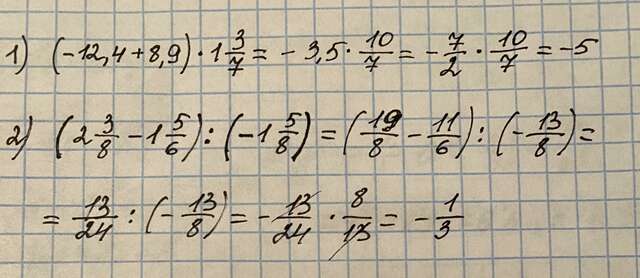 1) (-12,4+8,9)·1 3/7 = -3,5·10/7 = -7/2·10/7 = -5
2) (2 3/8 - 1 5/6) : (-1 5/8) = (19/8 - 11/6) : (-13/8) =
= 13/24 : (-13/8) = -13/24 · 8/13 = -1/3